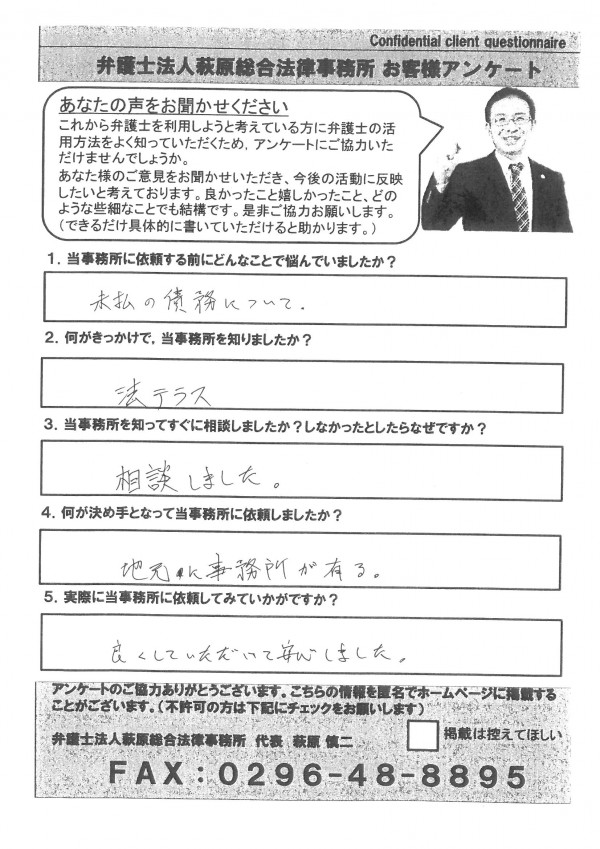 Confidential client questionnaire
弁護士法人萩原総合法律事務所 お客様アンケート
あなたの声をお聞かせください
これから弁護士を利用しようと考えている方に弁護士の活
用方法をよく知っていただくため，アンケートにご協力いた
だけませんでしょうか。
あなた様のご意見をお聞かせいただき、今後の活動に反映
したいと考えております。良かったこと嬉しかったこと、どの
ような些細なことでも結構です。是非ご協力お願いします。
（できるだけ具体的に書いていただけると助かります。）
1．当事務所に依頼する前にどんなことで悩んでいましたか？
未払の債務について．
2．何がきっかけで，当事務所を知りましたか？
法テラス
3．当事務所を知ってすぐに相談しましたか？しなかったとしたらなぜですか？
相談しました。
4．何が決め手となって当事務所に依頼しましたか？
地元に事務所が有る。
5．実際に当事務所に依頼してみていかがですか？
良くしていただいて安心しました。
アンケートのご協力ありがとうございます。こちらの情報を匿名でホームページに掲載する
ことがございます。（不許可の方は下記にチェックをお願いします）
弁護士法人萩原総合法律事務所 代表 萩原 慎二
掲載は控えてほしい
FAX：0296-48-8895